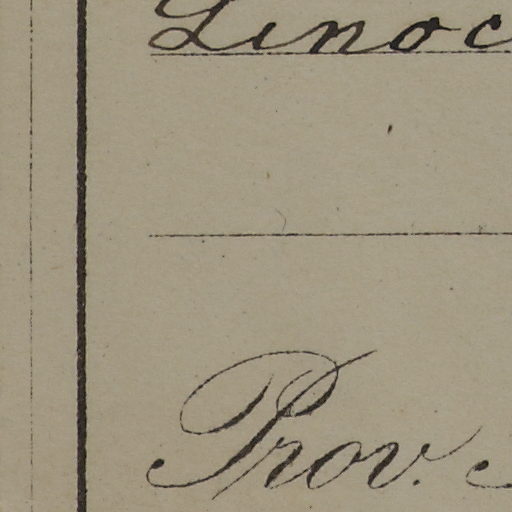 Linoc
Prov.